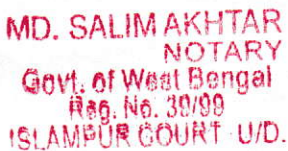 MD. SALIM AKHTAR
NOTARY
Govt. of West Bengal
Reg. No. 30/99
ISLAMPUR COURT U/D.